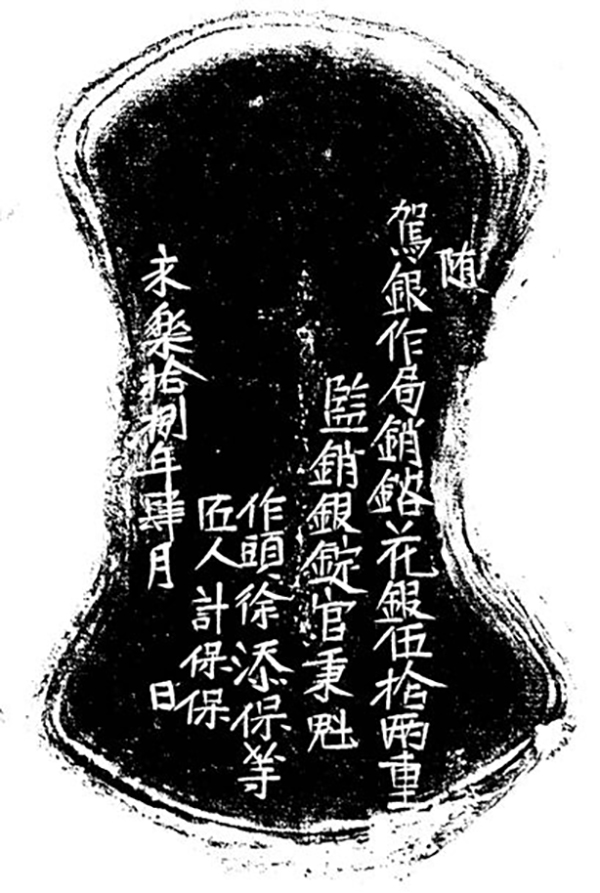 随
駕銀作局銷鎔花銀伍拾两重
監銷銀錠官秉魁
作頭徐添保等
匠人計保保
永樂拾捌年肆月　日